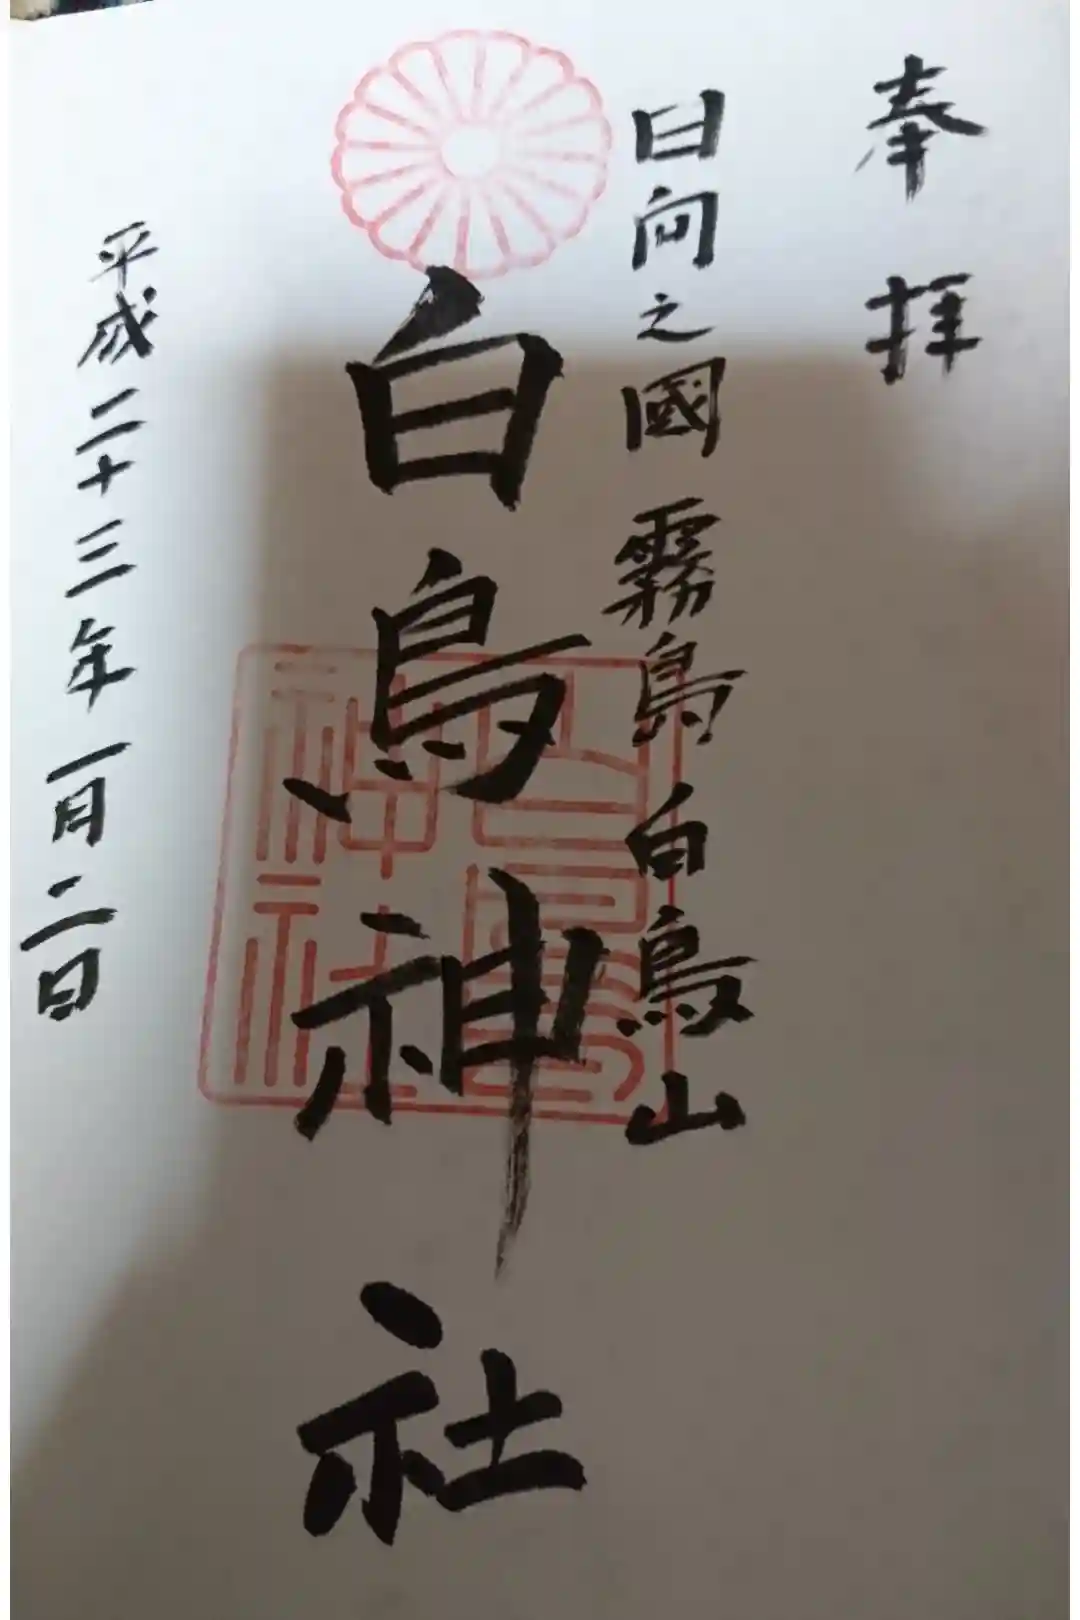 奉拝
日向之國 霧島 白鳥山
白鳥神社
白鳥
神社
平成二十三年一月二日